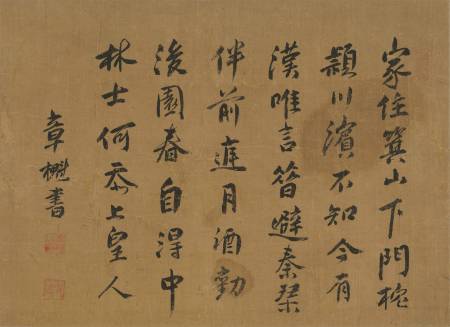 家住箕山下門枕
潁川濱不知今有
漢唯言昔避秦琴
伴前庭月酒勸
後園春自得中
林士何忝上皇人
章書